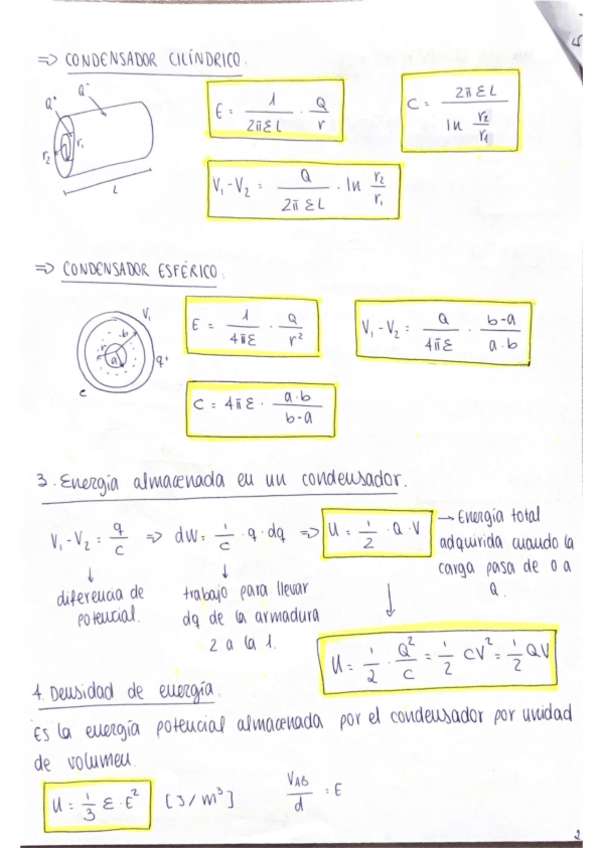 => CONDENSADOR CILÍNDRICO.
Q⁺ Q⁻ r₁ r₂ L
E = 1/(2πεL) · Q/r
C = 2πεL / ln (r₂/r₁)
V₁ - V₂ = Q/(2πεL) · ln r₂/r₁
=> CONDENSADOR ESFÉRICO.
V₁ b r a q⁺ c
E = 1/(4πε) · Q/r²
V₁ - V₂ = Q/(4πε) · (b-a)/(a·b)
C = 4πε · (a·b)/(b-a)
3. Energía almacenada en un condensador.
V₁ - V₂ = q/c => dW = 1/c · q · dq => U = 1/2 · Q · V → Energía total
adquirida cuando la
carga pasa de 0 a
Q.
↓ diferencia de
potencial.
↓ trabajo para llevar
dq de la armadura
2 a la 1.
↓
U = 1/2 · Q²/C = 1/2 CV² = 1/2 QV
4. Densidad de energía.
Es la energía potencial almacenada por el condensador por unidad
de volumen.
U = 1/3 ε · E² [J/m³] V_AB/d = E
2